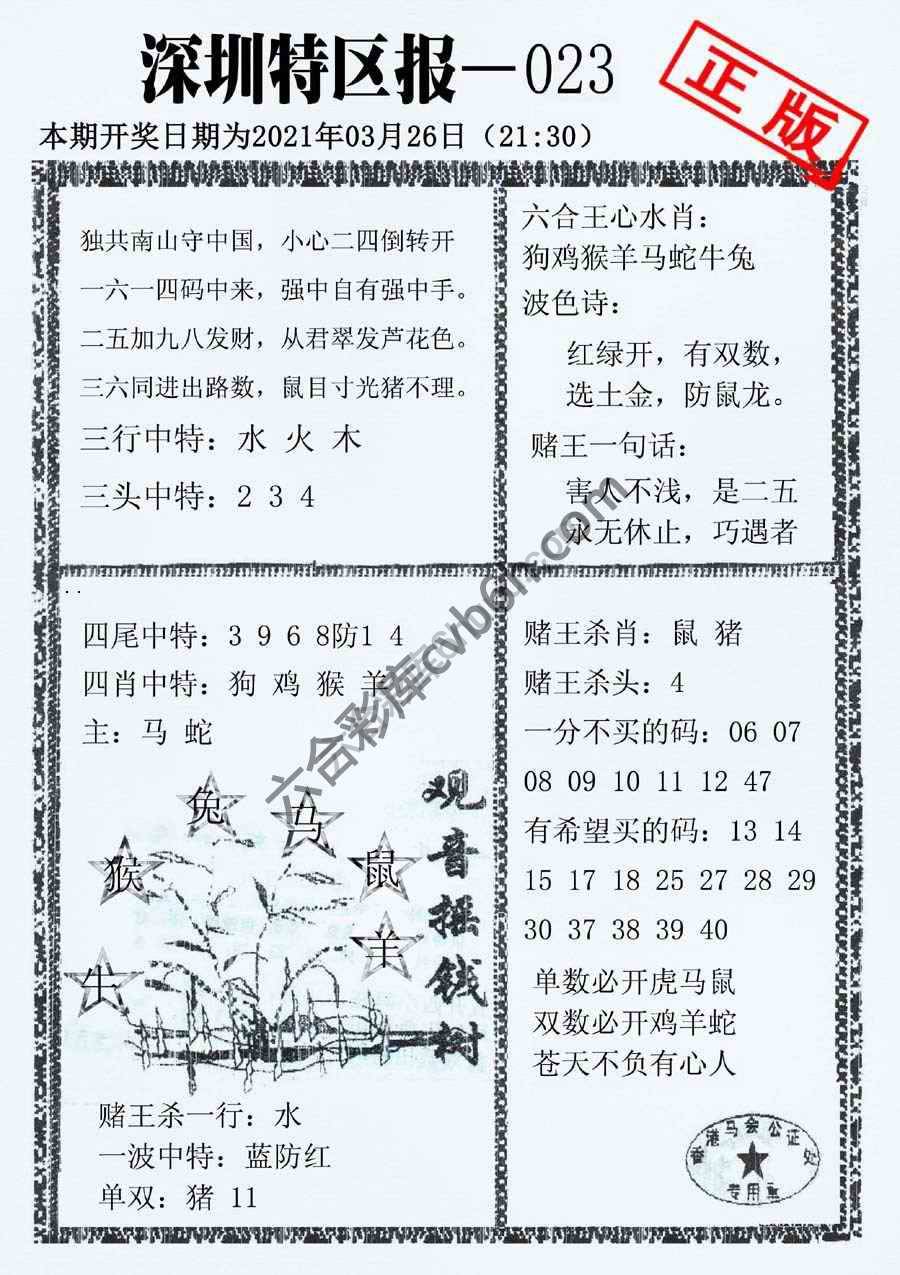 深圳特区报—023
正版
本期开奖日期为2021年03月26日（21:30）
独共南山守中国，小心二四倒转开
一六一四码中来，强中自有强中手。
二五加九八发财，从君翠发芦花色。
三六同进出路数，鼠目寸光猪不理。
三行中特：水 火 木
三头中特：2 3 4
六合王心水肖：
狗鸡猴羊马蛇牛兔
波色诗：
红绿开，有双数，
选土金，防鼠龙。
赌王一句话：
害人不浅，是二五
永无休止，巧遇者
四尾中特：3 9 6 8防1 4
四肖中特：狗 鸡 猴 羊
主：马 蛇
兔
马
猴
鼠
羊
牛
观音摇钱树
赌王杀一行：水
一波中特：蓝防红
单双：猪 11
赌王杀肖：鼠 猪
赌王杀头：4
一分不买的码：06 07
08 09 10 11 12 47
有希望买的码：13 14
15 17 18 25 27 28 29
30 37 38 39 40
单数必开虎马鼠
双数必开鸡羊蛇
苍天不负有心人
香港马会公证处
专用章
六合彩库cvb6h.com